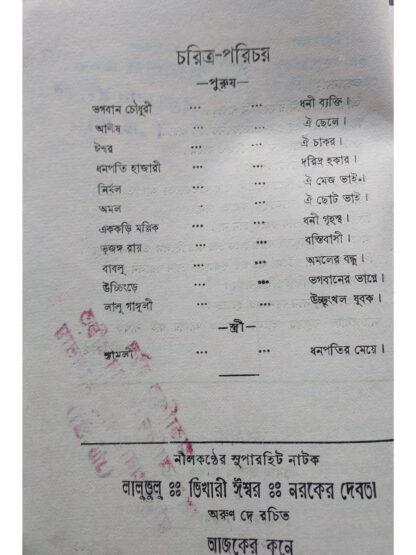 চরিত্র-পরিচয়
—পুরুষ—
ভগবান চৌধুরী ... ... ধনী ব্যক্তি।
আশীষ ... ... ঐ ছেলে।
ঈশ্বর ... ... ঐ চাকর।
ধনপতি হাজারী ... ... দরিদ্র হকার।
নির্মল ... ... ঐ মেজ ভাই।
অমল ... ... ঐ ছোট ভাই।
এককড়ি মল্লিক ... ... ধনী গৃহস্থ।
ভূজঙ্গ রায় ... ... বস্তিবাসী।
বাবলু ... ... অমলের বন্ধু।
উচ্চিংড়ে ... ... ভগবানের ভাগ্নে।
লালু গাঙ্গুলী ... ... উচ্ছৃংখল যুবক।
—স্ত্রী—
শ্যামলী ... ... ধনপতির মেয়ে।
নীলকণ্ঠের সুপারহিট নাটক
লালুভুলু ঃঃ ভিখারী ঈশ্বর ঃঃ নরকের দেবতা
অরুণ দে রচিত
আজকের কনে